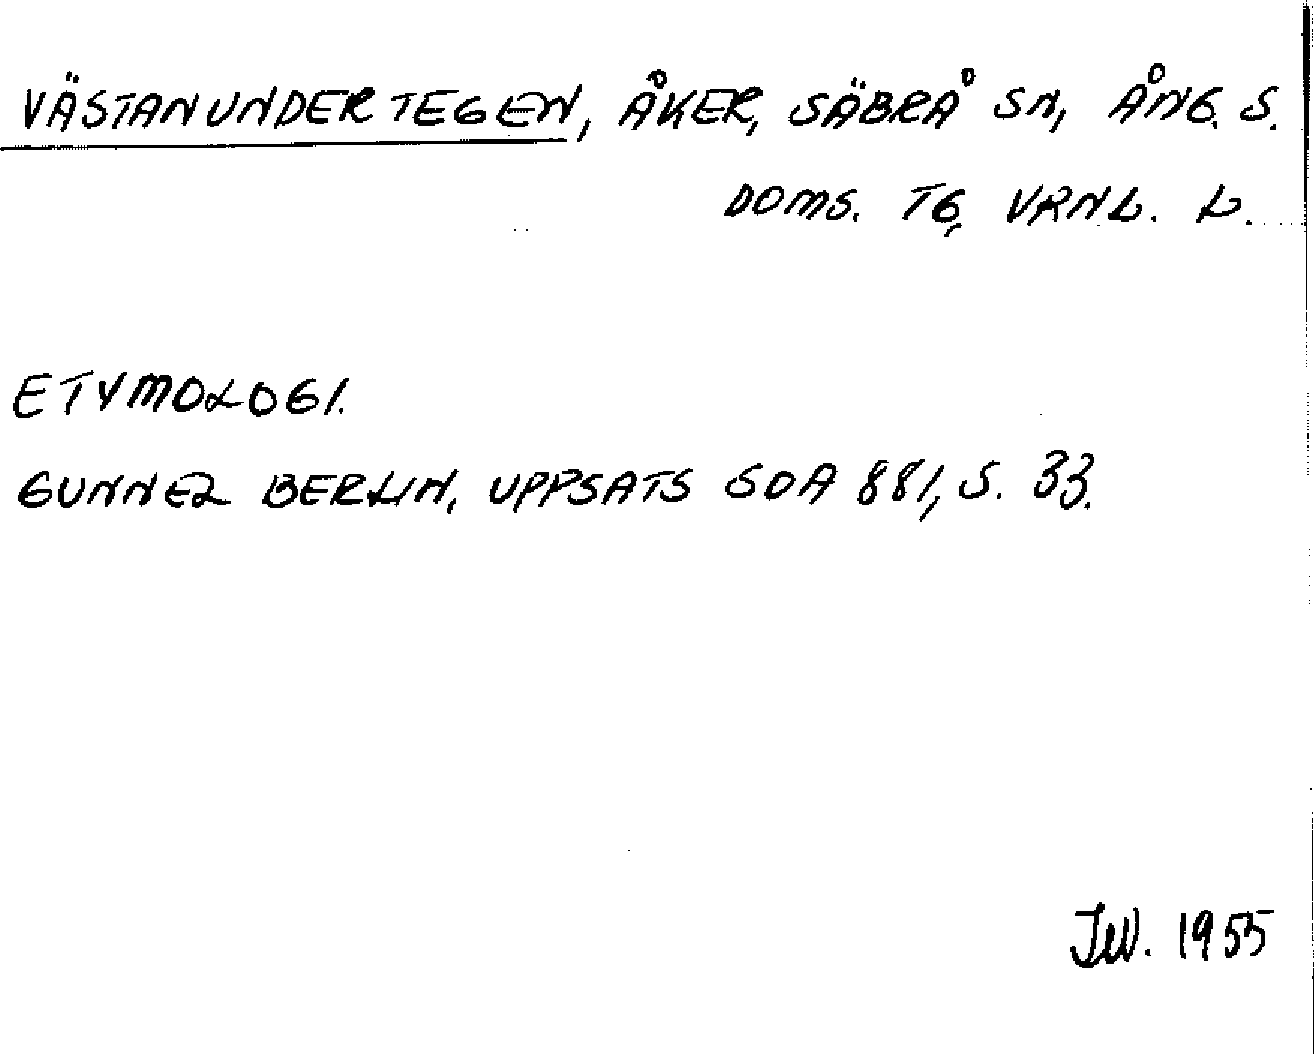 VÄSTANUNDERTEGEN, ÅKER, SÄBRÅ SN, ÅNG. S.
DOMS. TG, VRNL. L.
ETYMOLOGI.
GUNNEL BERLIN, UPPSATS SOA 881, S. 33.
JW. 1955